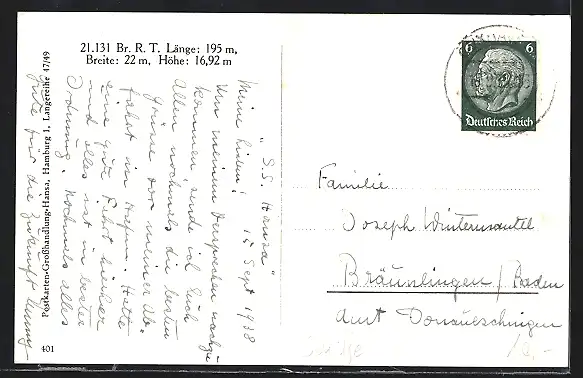 21.131 Br. R. T. Länge: 195 m,
Breite: 22 m, Höhe: 16,92 m
"S.S. Hansa"
15 Sept 1938
Meine Lieben!
Um meinem Versprechen nachzu
kommen, sende ich Euch
Allen nochmals die besten
Grüsse vor meiner Ab-
fahrt in Hafen. Hatte
eine gute Fahrt hierher
und alles ist in bester
Ordnung. Nochmals alles
Gute für die Zukunft
Postkarten-Großhandlung-Hansa, Hamburg 1, Langereihe 47/49
401
6 6
Deutsches Reich
Familie
Joseph Wintermantel
Bräunlingen / Baden
Amt Donaueschingen